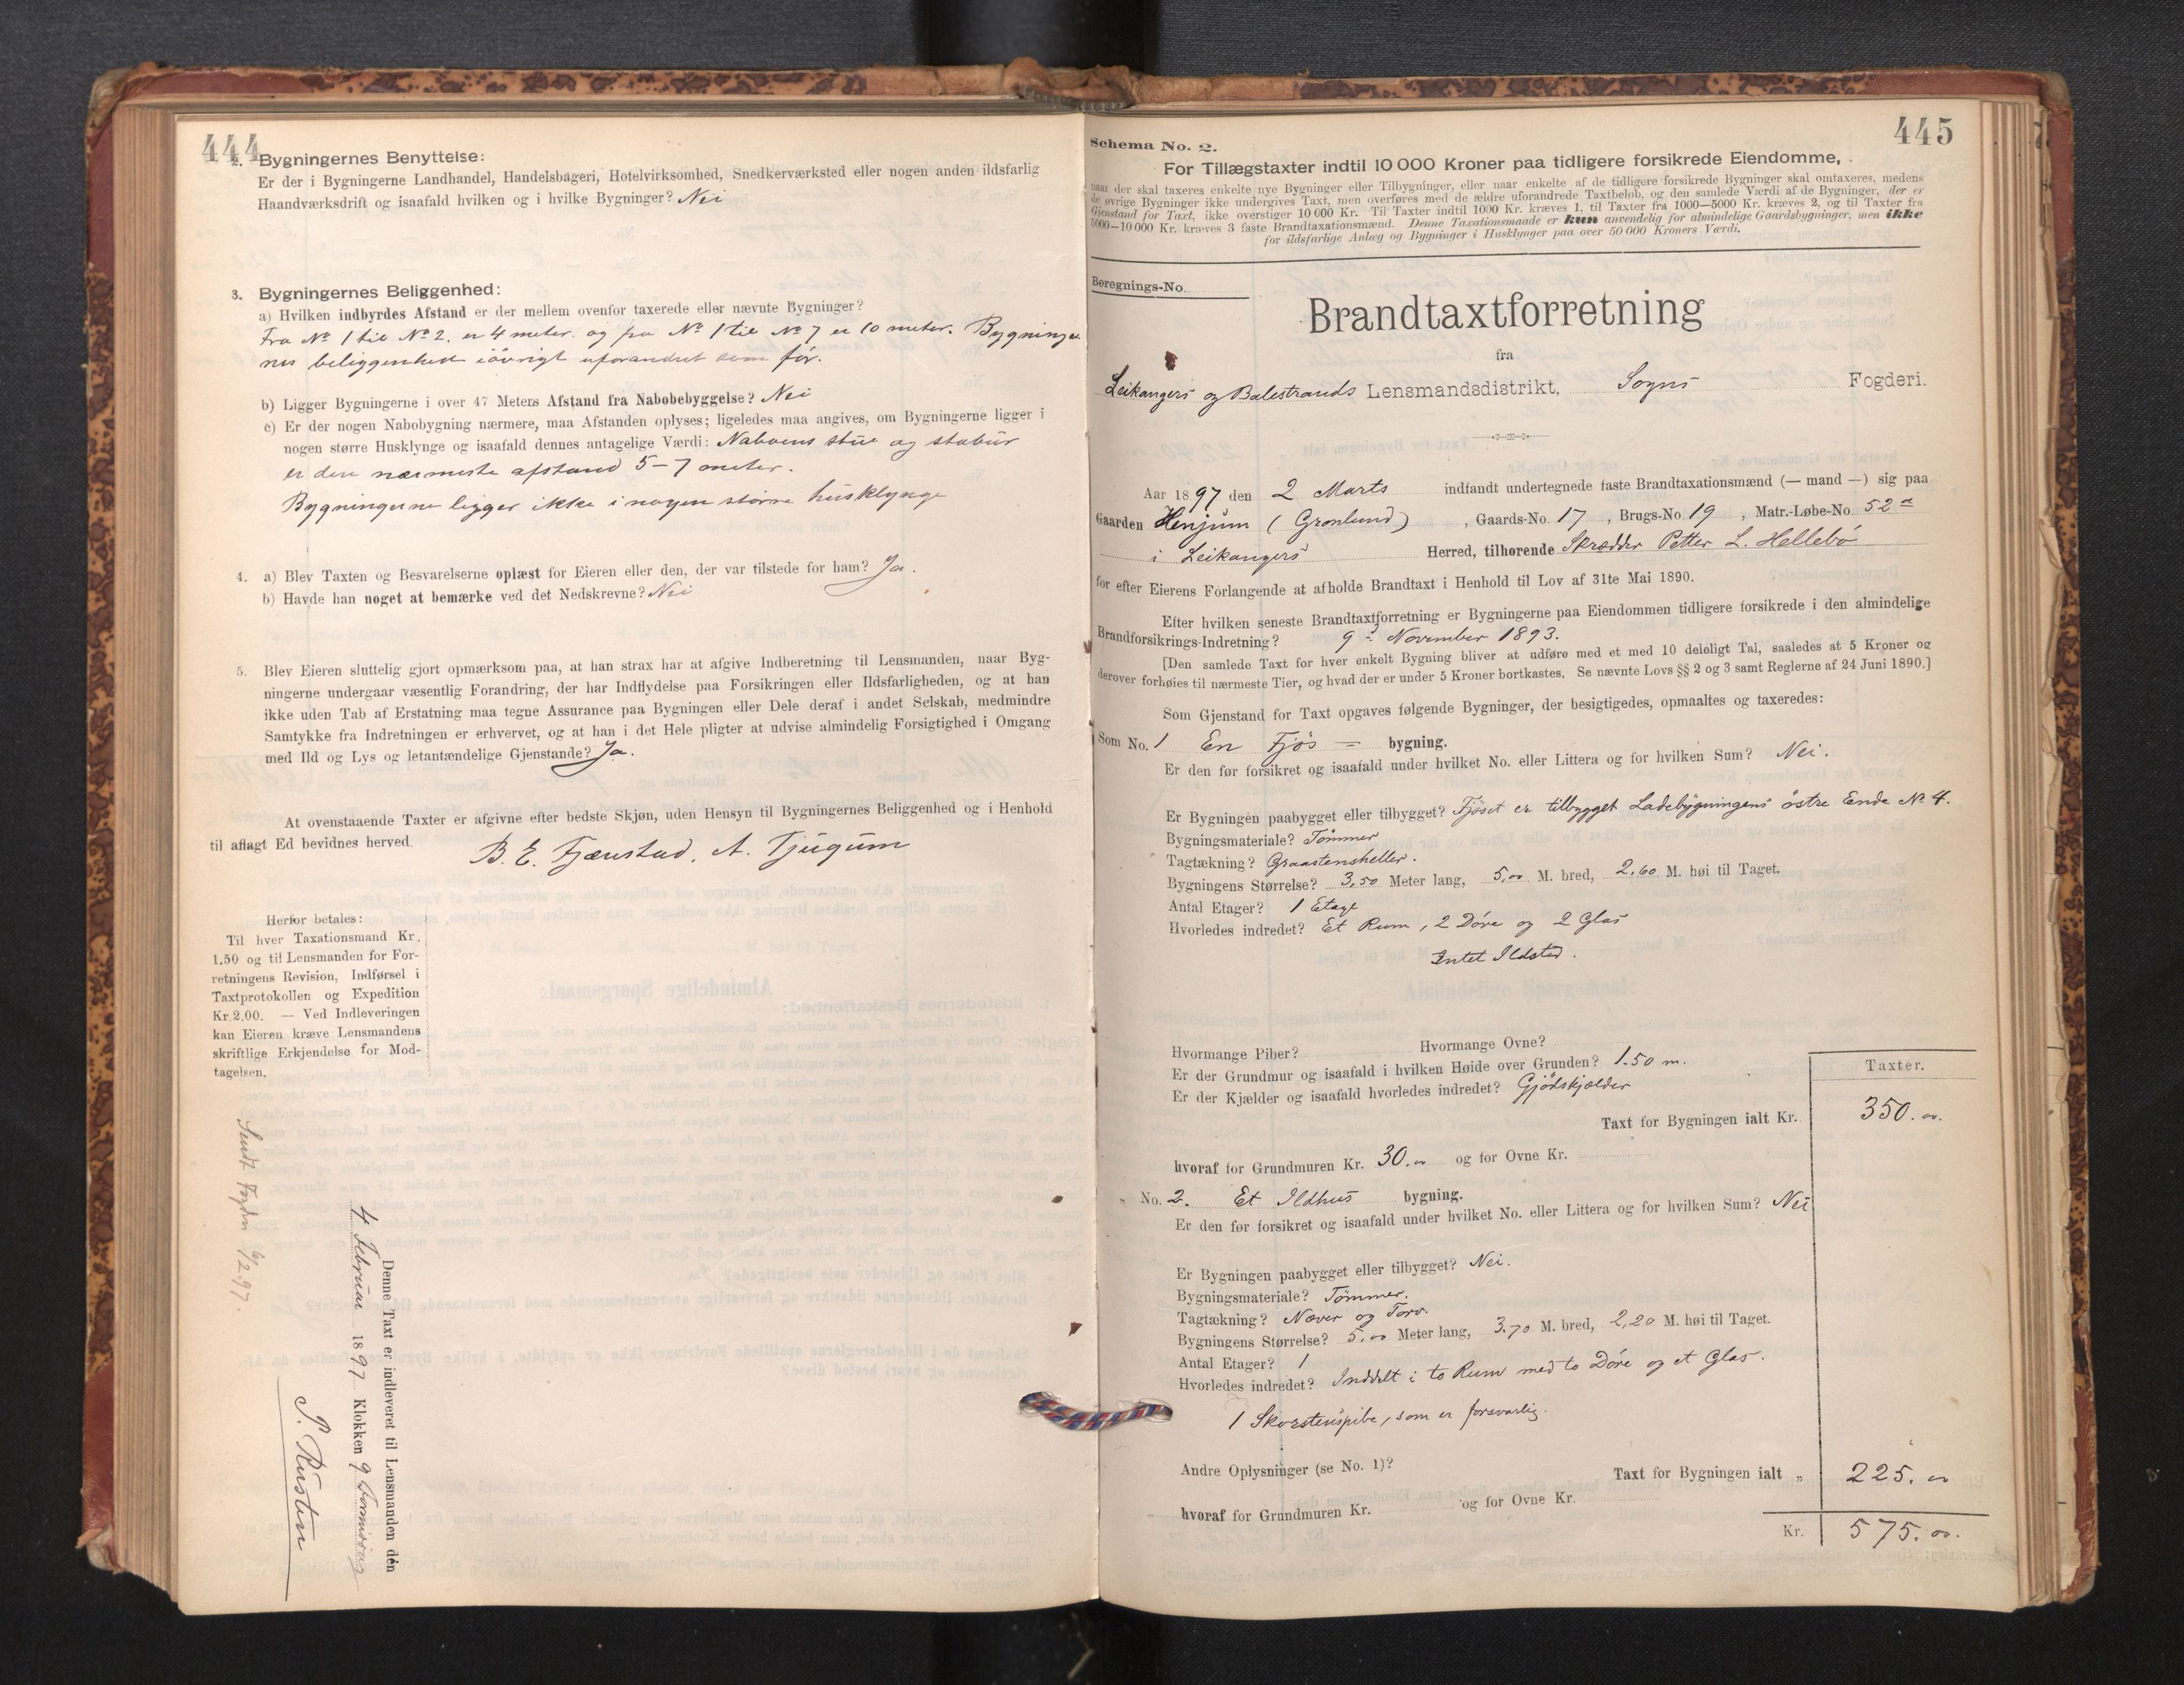 444
2. Bygningernes Benyttelse:
Er der i Bygningerne Landhandel, Handelsbageri, Hotelvirksomhed, Snedkerværksted eller nogen anden ildsfarlig
Haandværksdrift og isaafald hvilken og i hvilke Bygninger? Nei
3. Bygningernes Beliggenhed:
a) Hvilken indbyrdes Afstand er der mellem ovenfor taxerede eller nævnte Bygninger?
Fra No 1 til No 2. er 4 meter. og fra No 1 til No 7 er 10 meter. Bygninger
nes beliggenhed iøvrigt uforandret som før.
b) Ligger Bygningerne i over 47 Meters Afstand fra Nabobebyggelse? Nei
c) Er der nogen Nabobygning nærmere, maa Afstanden oplyses; ligeledes maa angives, om Bygningerne ligger i
nogen større Husklynge og isaafald dennes antagelige Værdi: Naboens stue og stabur
er den nærmeste afstand 5-7 meter.
Bygningerne ligger ikke i nogen større husklynge
4. a) Blev Taxten og Besvarelserne oplæst for Eieren eller den, der var tilstede for ham? Ja.
b) Havde han noget at bemærke ved det Nedskrevne? Nei
5. Blev Eieren sluttelig gjort opmærksom paa, at han strax har at afgive Indberetning til Lensmanden, naar Byg-
ningerne undergaar væsentlig Forandring, der har Indflydelse paa Forsikringen eller Ildsfarligheden, og at han
ikke uden Tab af Erstatning maa tegne Assurance paa Bygningen eller Dele deraf i andet Selskab, medmindre
Samtykke fra Indretningen er erhvervet, og at han i det Hele pligter at udvise almindelig Forsigtighed i Omgang
med Ild og Lys og letantændelige Gjenstande? Ja.
At ovenstaaende Taxter er afgivne efter bedste Skjøn, uden Hensyn til Bygningernes Beliggenhed og i Henhold
til aflagt Ed bevidnes herved.
B. E. Fjærestad, A. Tjugum
Herfor betales:
Til hver Taxationsmand Kr.
1.50 og til Lensmanden for For-
retningens Revision, Indførsel i
Taxtprotokollen og Expedition
Kr. 2.00. — Ved Indleveringen
kan Eieren kræve Lensmandens
skriftlige Erkjendelse for Mod-
tagelsen.
Denne Taxt er indleveret til Lensmanden den
4 Februar 1897 Klokken 9 Formiddag
P. Rusten
Sendt Fogden 6/2.97.
445
Schema No. 2.
For Tillægstaxter indtil 10 000 Kroner paa tidligere forsikrede Eiendomme,
naar der skal taxeres enkelte nye Bygninger eller Tilbygninger, eller naar enkelte af de tidligere forsikrede Bygninger skal omtaxeres, medens
de øvrige Bygninger ikke undergives Taxt, men overføres med de ældre uforandrede Taxtbeløb, og den samlede Værdi af de Bygninger, der er
Gjenstand for Taxt, ikke overstiger 10 000 Kr. Til Taxter indtil 1000 Kr. kræves 1, til Taxter fra 1000—5000 Kr. kræves 2, og til Taxter fra
5000—10 000 Kr. kræves 3 faste Brandtaxationsmænd. Denne Taxationsmaade er kun anvendelig for almindelige Gaardsbygninger, men ikke
for ildsfarlige Anlæg og Bygninger i Husklynger paa over 50 000 Kroners Værdi.
Beregnings-No.
Brandtaxtforretning
fra
Leikangers og Balestrands Lensmandsdistrikt, Sogns Fogderi.
Aar 1897 den 2 Marts indfandt undertegnede faste Brandtaxationsmænd (— mand —) sig paa
Gaarden Henjum (Grønlund), Gaards-No. 17, Brugs-No. 19, Matr.-Løbe-No. 52 a
i Leikangers Herred, tilhørende Skrædder Petter L. Hellebø
for efter Eierens Forlangende at afholde Brandtaxt i Henhold til Lov af 31te Mai 1890.
Efter hvilken seneste Brandtaxtforretning er Bygningerne paa Eiendommen tidligere forsikrede i den almindelige
Brandforsikrings-Indretning? 9 November 1893.
[Den samlede Taxt for hver enkelt Bygning bliver at udføre med et med 10 deleligt Tal, saaledes at 5 Kroner og
derover forhøies til nærmeste Tier, og hvad der er under 5 Kroner bortkastes. Se nævnte Lovs §§ 2 og 3 samt Reglerne af 24 Juni 1890.]
Som Gjenstand for Taxt opgaves følgende Bygninger, der besigtigedes, opmaaltes og taxeredes:
Som No. 1 En Fjøs = bygning.
Er den før forsikret og isaafald under hvilket No. eller Littera og for hvilken Sum? Nei.
Er Bygningen paabygget eller tilbygget? Fjøset er tilbygget Ladebygningens østre Ende No 4.
Bygningsmateriale? Tømmer
Tagtækning? Graastensheller.
Bygningens Størrelse? 3,50 Meter lang, 5,00 M. bred, 2,60 M. høi til Taget.
Antal Etager? 1 Etage
Hvorledes indredet? Et Rum, 2 Døre og 2 Glas
Intet Ildsted.
Hvormange Piber? Hvormange Ovne?
Er der Grundmur og isaafald i hvilken Høide over Grunden? 1.50 m.
Er der Kjælder og isaafald hvorledes indredet? Gjødskjælder
Taxter.
Taxt for Bygningen ialt Kr. 350.00
hvoraf for Grundmuren Kr. 30.00 og for Ovne Kr.
" No. 2. Et Ildhus bygning.
Er den før forsikret og isaafald under hvilket No. eller Littera og for hvilken Sum? Nei
Er Bygningen paabygget eller tilbygget? Nei.
Bygningsmateriale? Tømmer.
Tagtækning? Næver og Torv.
Bygningens Størrelse? 5,00 Meter lang, 3,70 M. bred, 2,20 M. høi til Taget.
Antal Etager? 1
Hvorledes indredet? Inddelt i to Rum med to Døre og et Glas.
1 Skorstenspibe, som er forsvarlig.
Andre Oplysninger (se No. 1)? Taxt for Bygningen ialt " 225.00
hvoraf for Grundmuren Kr. og for Ovne Kr.
Kr. 575.00.